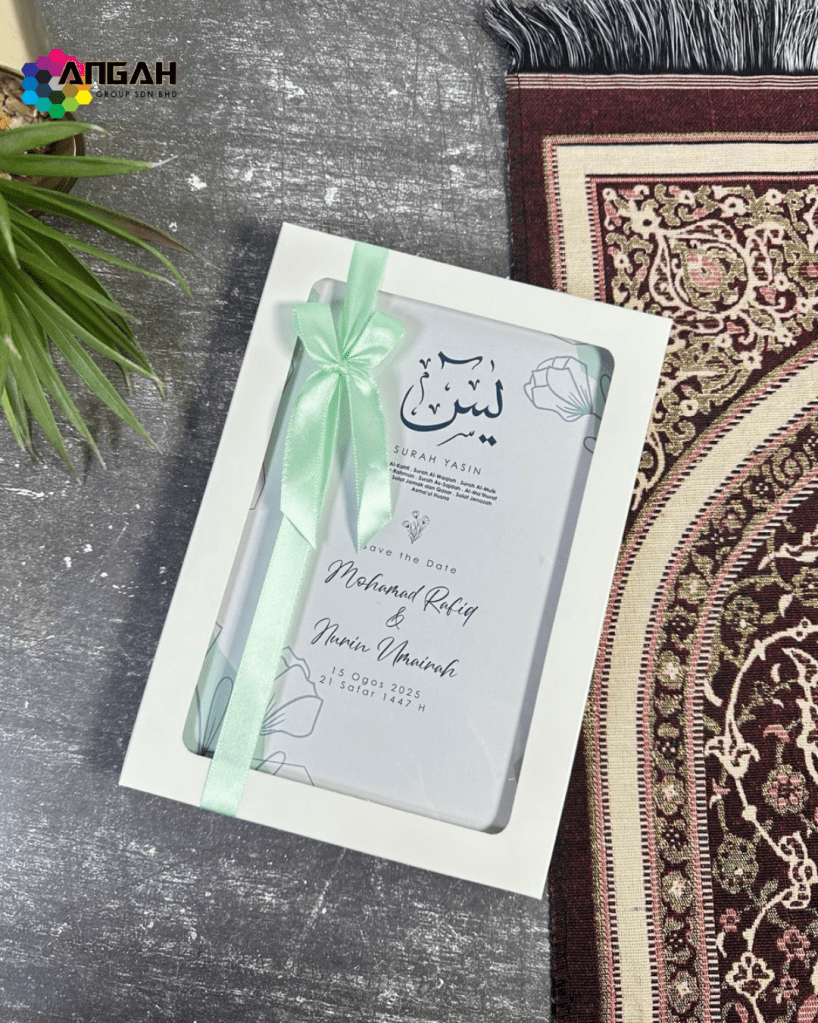 ANGAH
GROUP SDN BHD
يس
SURAH YASIN
Al-Kahfi . Surah Al-Waqiah . Surah Al-Mulk
-Rahman . Surah As-Sajdah . Al-Ma'thurat
Solat Jamak dan Qasar . Solat Jenazah
Asma'ul Husna
Save the Date
Mohamad Rafiq
&
Nurin Umairah
15 Ogos 2025
21 Safar 1447 H